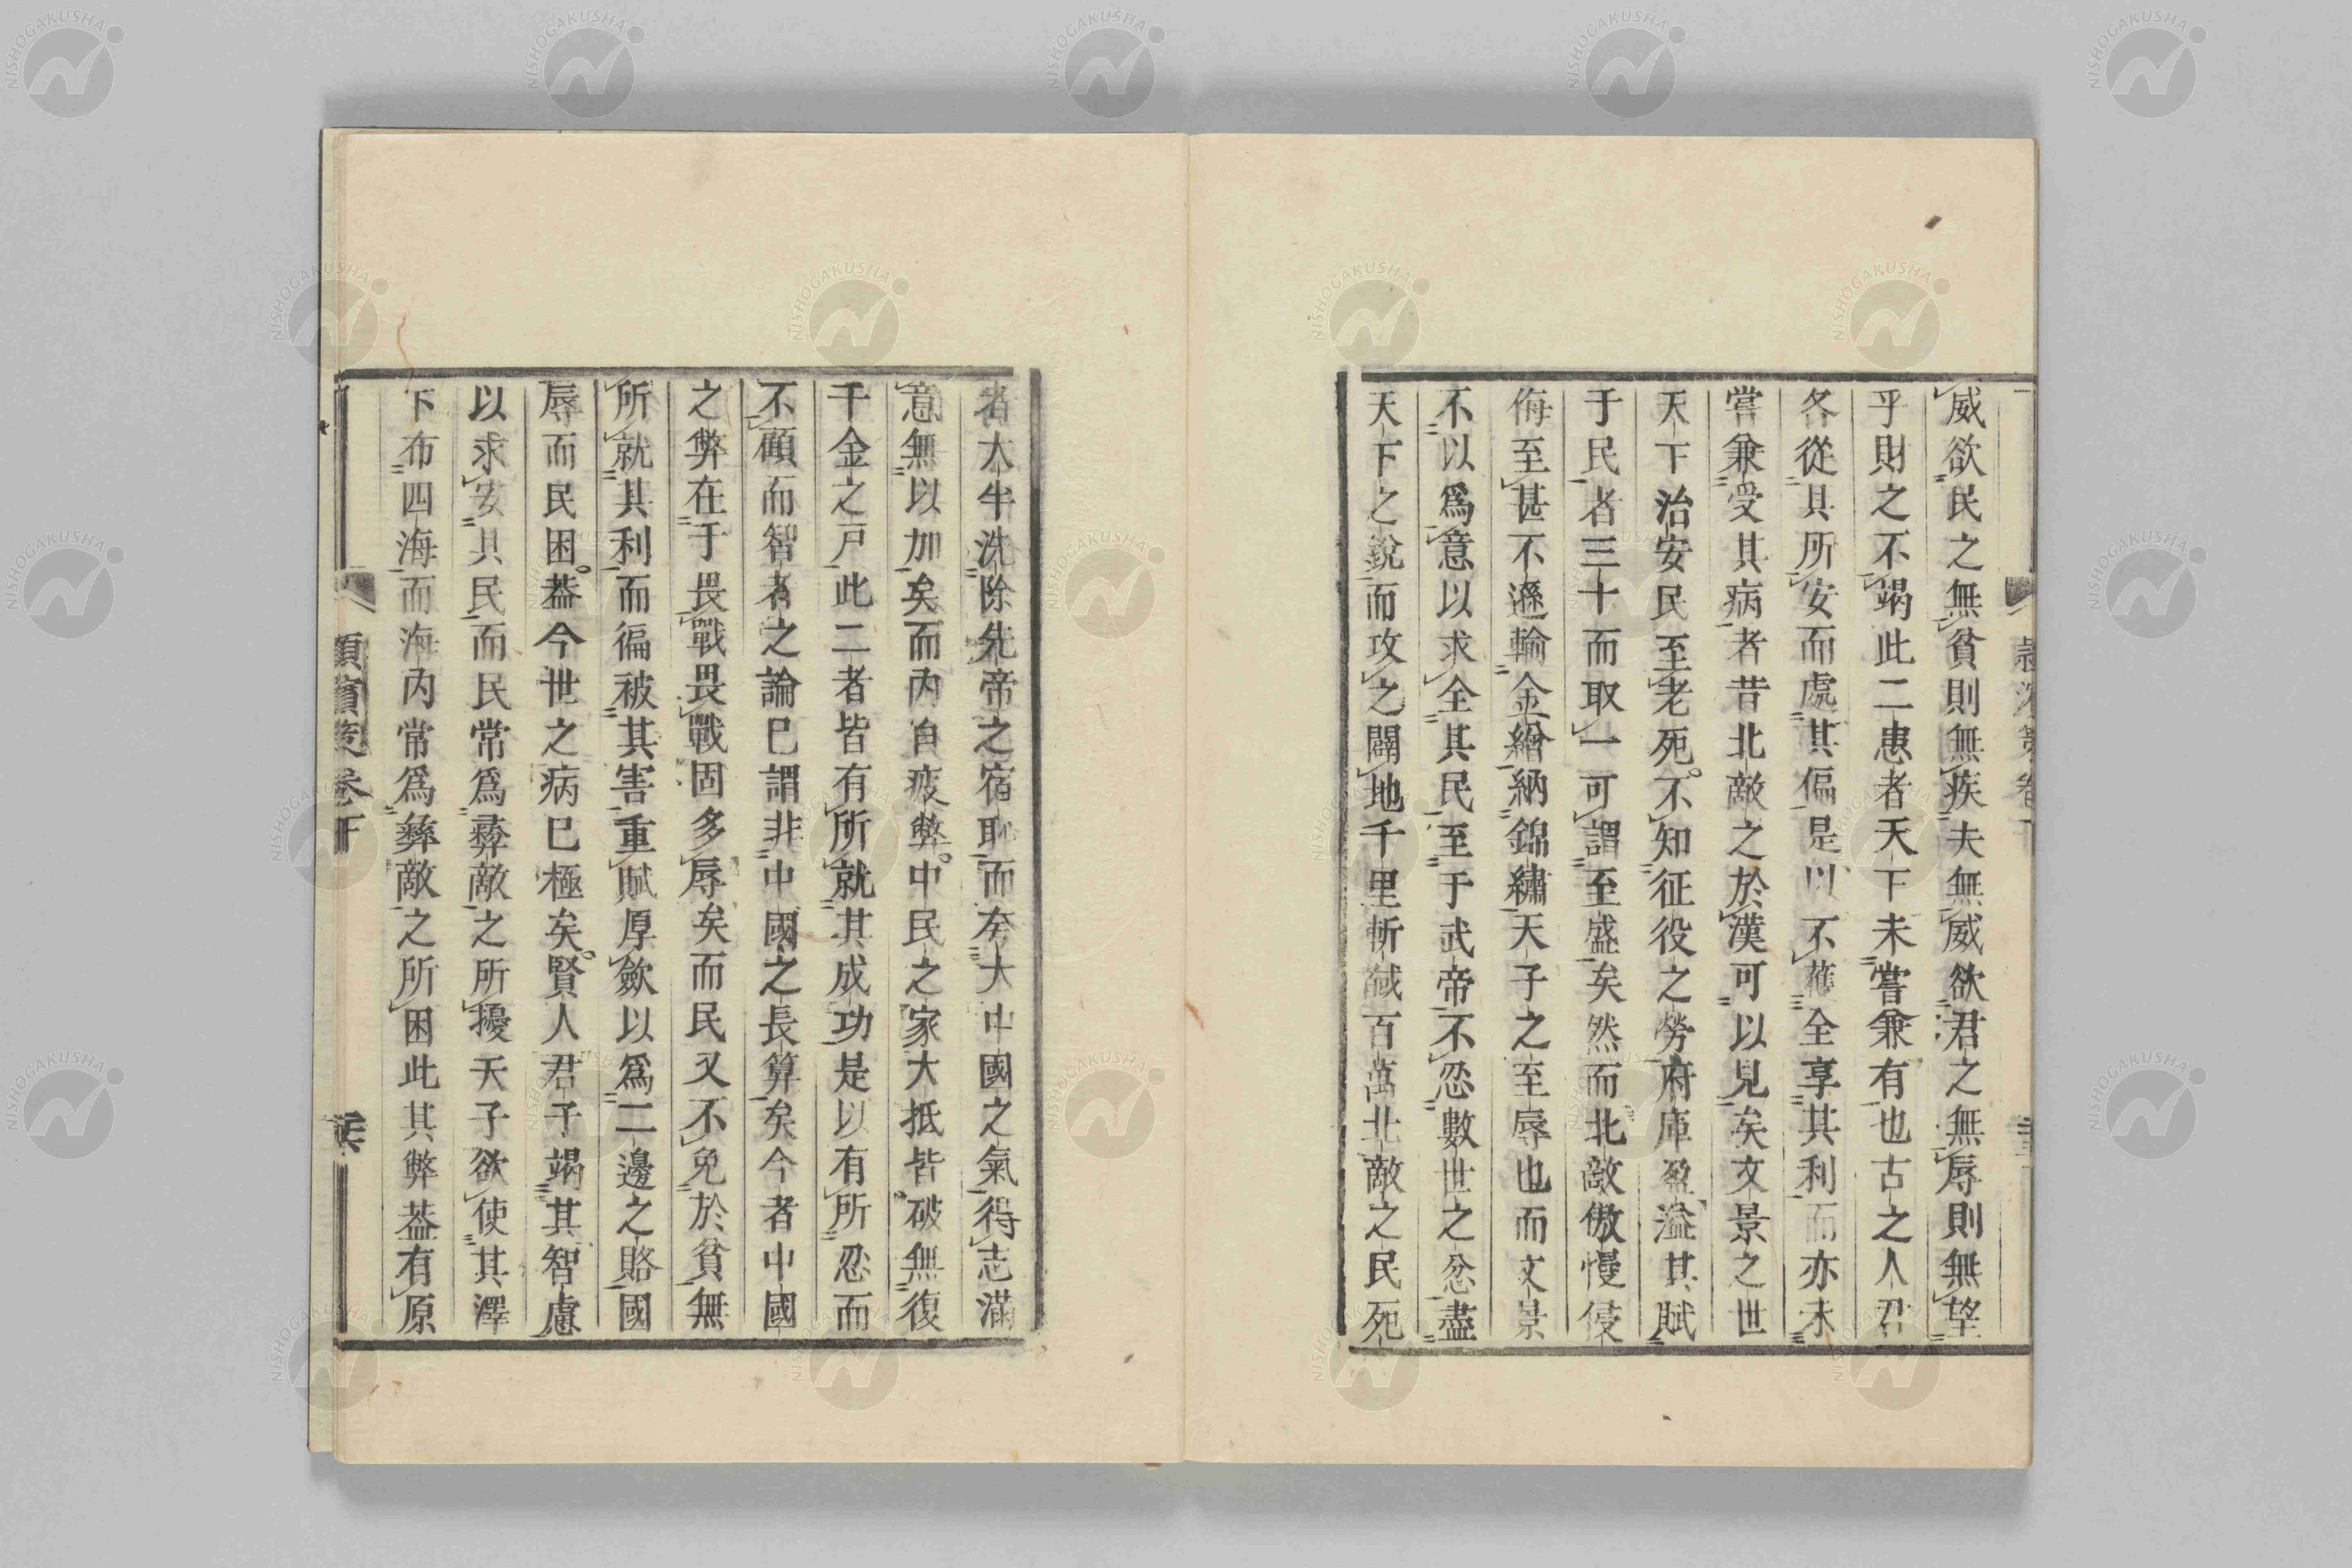 威欲民之無貧則無疾夫無威欲君之無辱則無望
乎財之不竭此二患者天下未嘗兼有也古之人君
各從其所安而處其偏是以不獲全享其利而亦未
嘗兼受其病者昔北敵之於漢可以見矣文景之世
天下治安民至老死不知征役之勞府庫盈溢其賦
于民者三十而取一可謂至盛矣然而北敵傲慢侵
侮至甚不遜輸金繒納錦繡天子之至辱也而文景
不以爲意以求全其民至于武帝不忍數世之忿盡
天下之銳而攻之闢地千里斬馘百萬北敵之民死
者大半洗除先帝之宿恥而夸大中國之氣得志滿
意無以加矣而內自疲弊中民之家大抵皆破無復
千金之戶此二者皆有所就其成功是以有所忍而
不顧而智者之論已謂非中國之長算矣今者中國
之弊在于畏戰畏戰固多辱矣而民又不免於貧無
所就其利而徧被其害重賦厚歛以爲二邊之賂國
辱而民困葢今世之病已極矣賢人君子竭其智慮
以求安其民而民常爲彜敵之所擾天子欲使其澤
下布四海而海內常爲彜敵之所困此其弊葢有原
潁濱策卷下
NISHOGAKUSHA